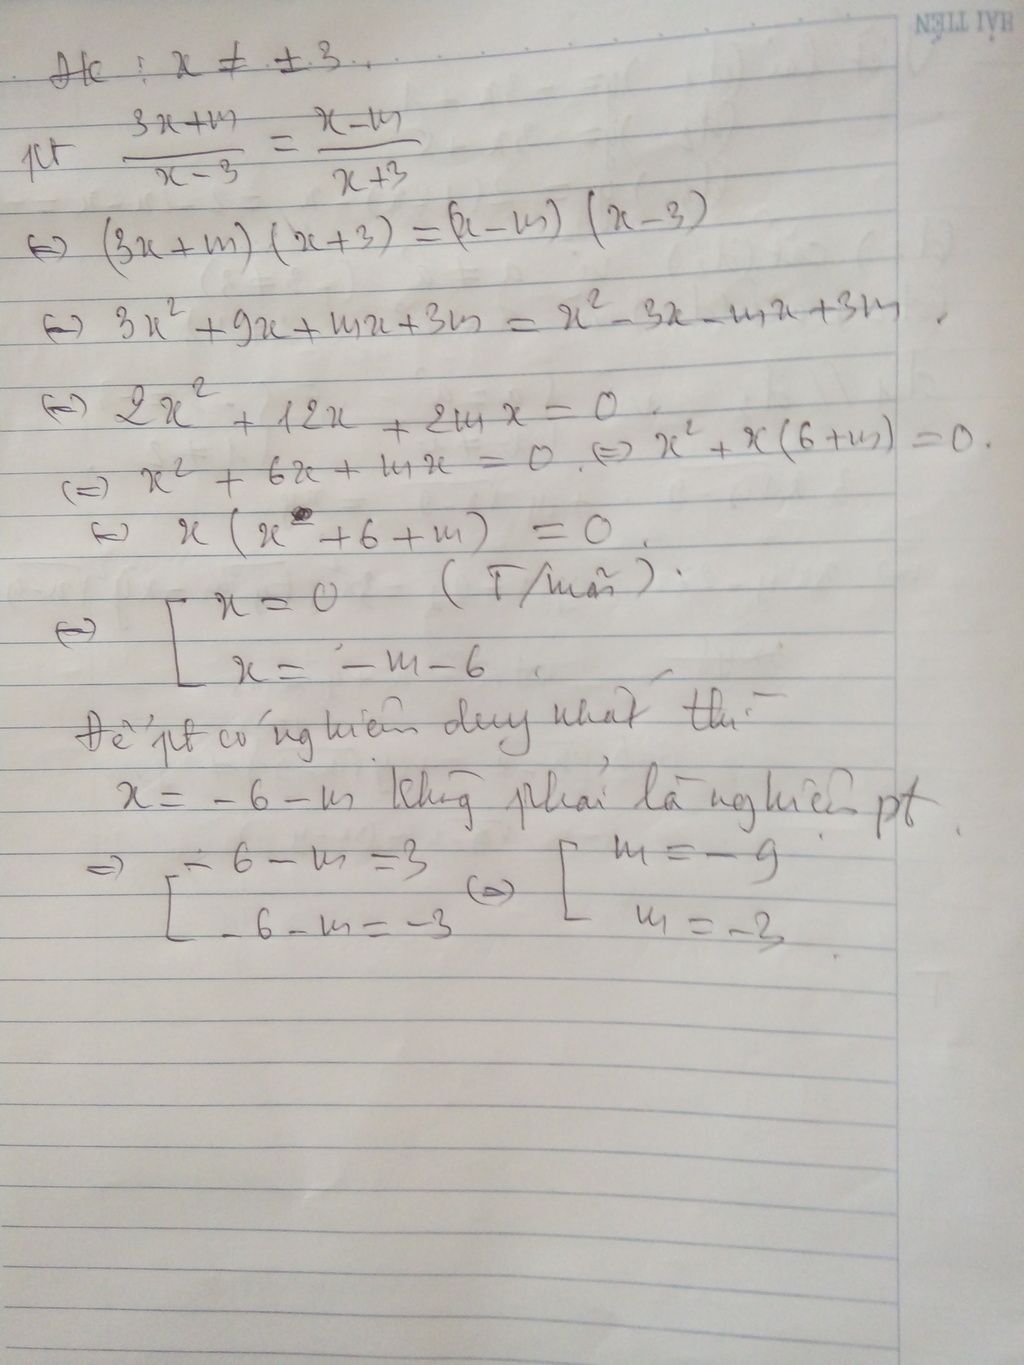 HẢI TIẾN
Đk : x ≠ ± 3.
pt (3x+m)/(x-3) = (x-m)/(x+3)
⇔ (3x+m)(x+3) = (x-m)(x-3)
⇔ 3x² + 9x + mx + 3m = x² - 3x - mx + 3m.
⇔ 2x² + 12x + 2mx = 0.
⇔ x² + 6x + mx = 0. ⇔ x² + x(6+m) = 0.
⇔ x(x + 6 + m) = 0.
⇔ [ x = 0 (T/mãn).
x = -m-6.
Để pt có nghiệm duy nhất thì
x = -6-m không phải là nghiệm pt.
⇒ [ -6-m = 3 ⇔ [ m = -9
-6-m = -3 m = -3